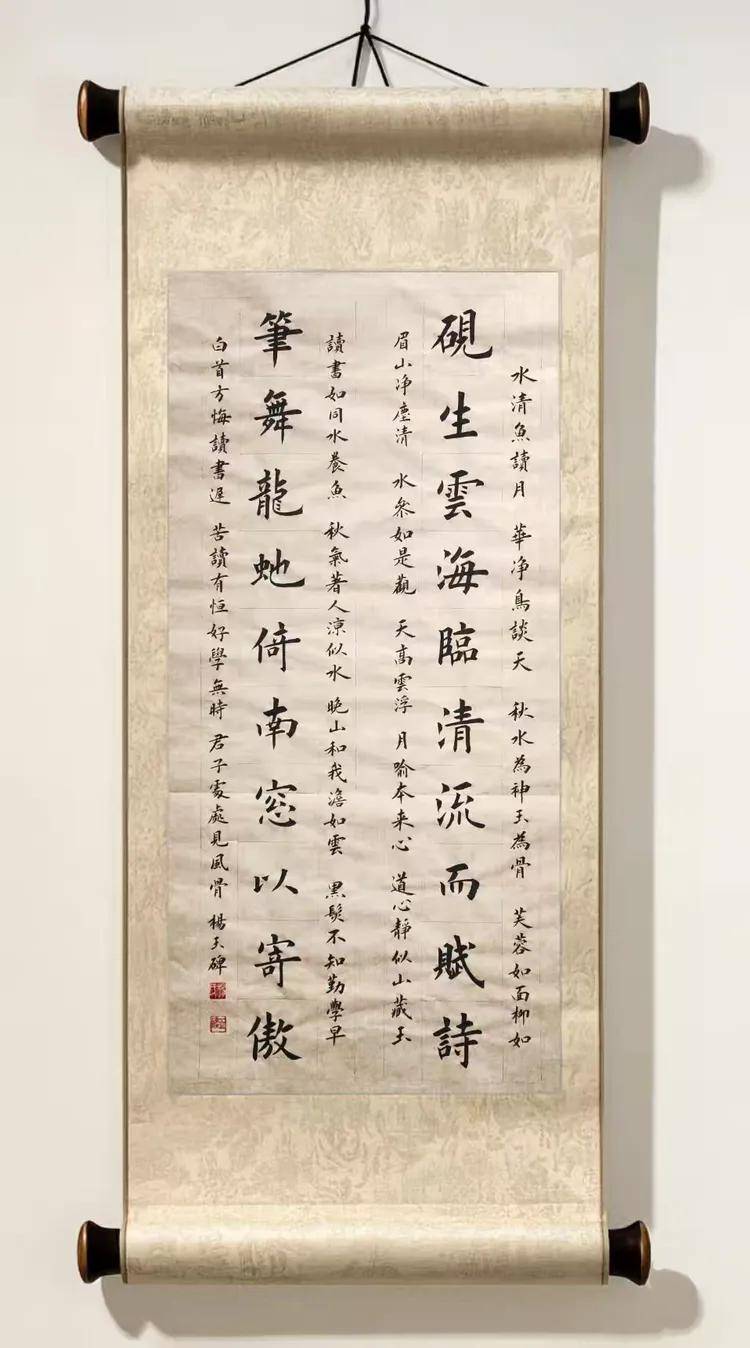 水清魚讀月 華净鳥談天 秋水為神玉為骨 芙蓉如面柳如
硯生雲海臨清流而賦詩
眉山净塵清 水參如是觀 天高雲浮 月喻本来心 道心靜似山藏玉
讀書如同水養魚 秋氣著人涼似水 晚山和我澹如雲 黑髮不知勤學早
筆舞龍虵倚南窓以寄傲
白首方悔讀書遲 苦讀有恒 好學無時 君子處處見風骨 楊玉碑